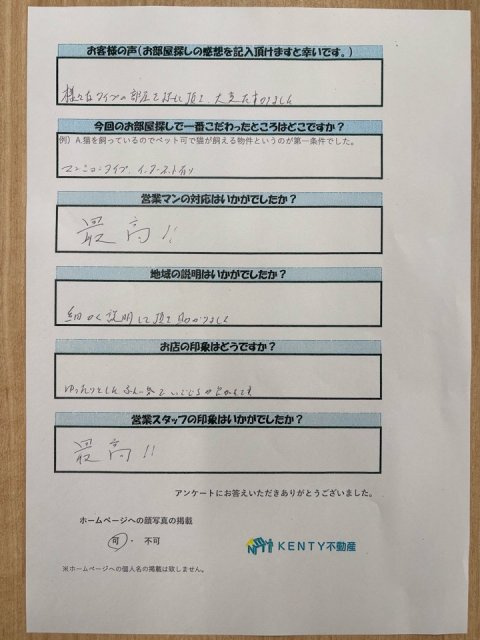 お客様の声(お部屋探しの感想を記入頂けますと幸いです。)
様々なタイプの部屋を 頂き、大変たすかりました
今回のお部屋探しで一番こだわったところはどこですか？
例）A.猫を飼っているのでペット可で猫が飼える物件というのが第一条件でした。
マンションタイプ、インターネット有り
営業マンの対応はいかがでしたか？
最高!!
地域の説明はいかがでしたか？
細かく説明して頂き助かりました
お店の印象はどうですか？
ゆったりとした
営業スタッフの印象はいかがでしたか？
最高!!
アンケートにお答えいただきありがとうございました。
ホームページへの顔写真の掲載
可・ 不可
KENTY不動産
※ホームページへの個人名の掲載は致しません。